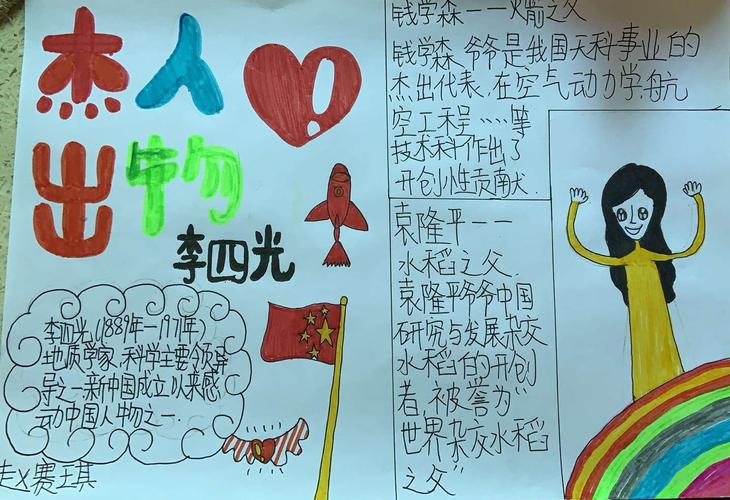 杰出
人物
李四光
李四光(1889年一1971年)
地质学家,科学主要领导
导之一,新中国成立以来感
动中国人物之一.
赵赛琪
钱学森——火箭之父
钱学森爷爷是我国天科事业的
杰出代表.在空气动力学,航
空工程……等
技术科作出了
开创性贡献.
袁隆平——
水稻之父.
袁隆平爷爷中国
研究与发展杂交
水稻的开创
者,被誉为“
世界杂交水稻
之父”